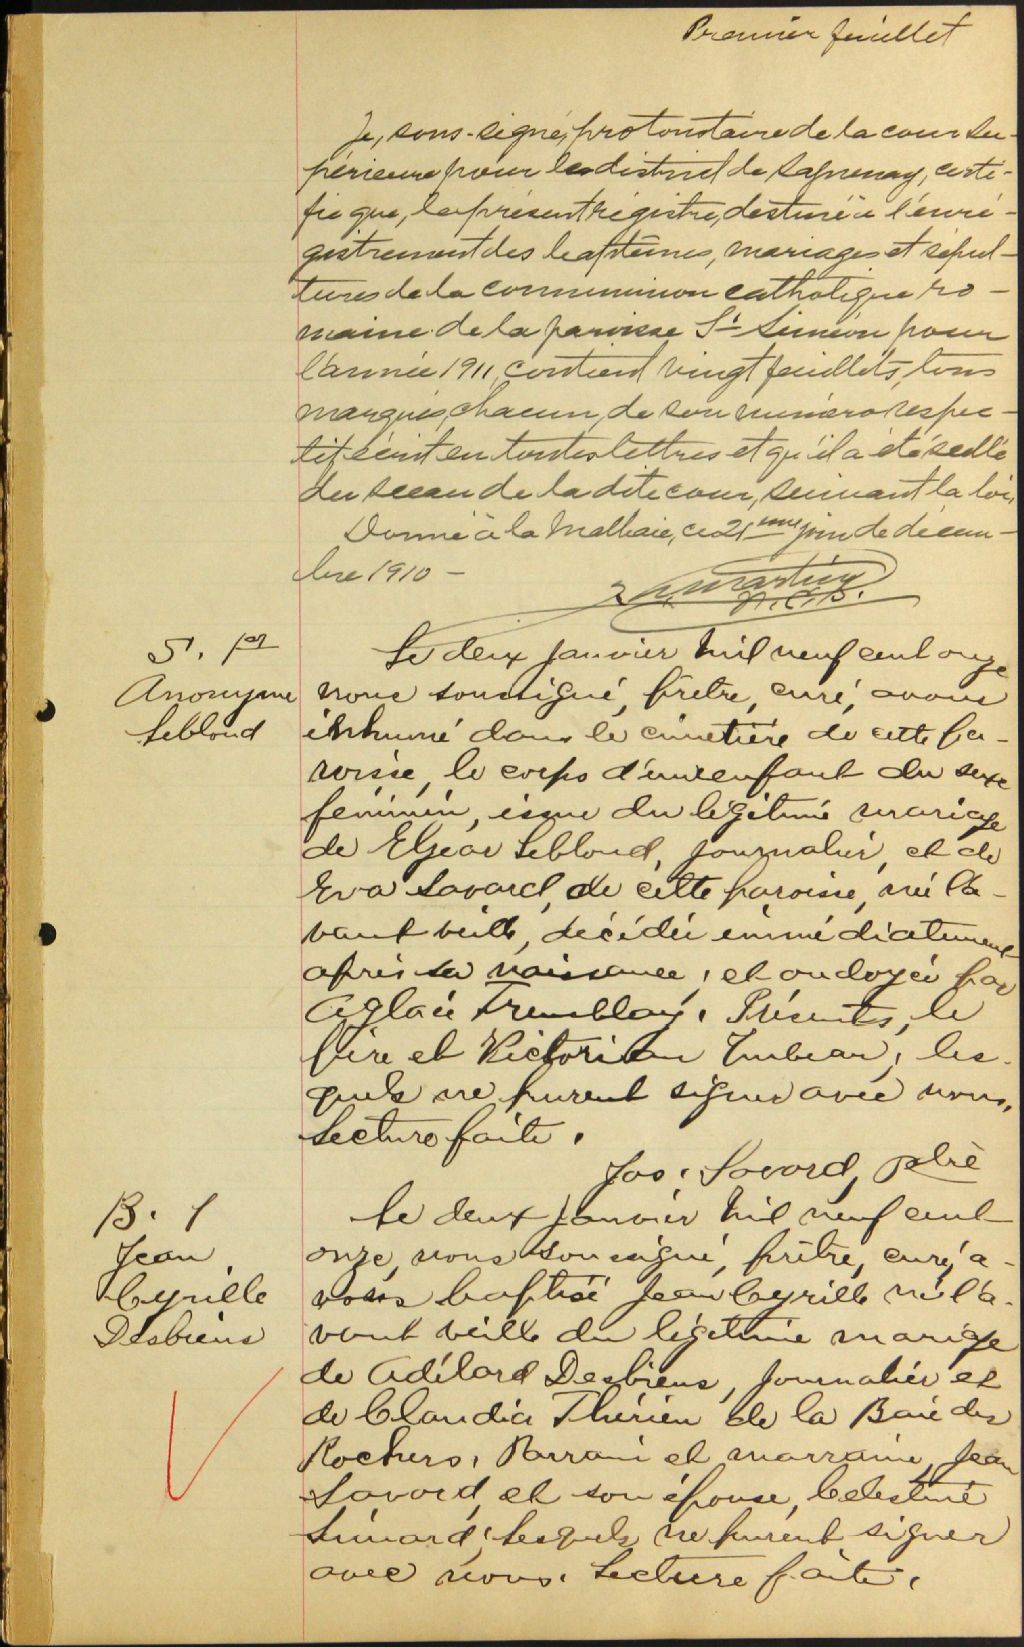 Premier feuillet
Je, sous-signé, protonotaire de la cour su-
périeure pour le district de Saguenay, certi-
fie que, le présent régistre, destiné à l'enré-
gistrement des baptêmes, mariages et sépul-
tures de la communion catholique ro-
maine de la paroisse St Siméon pour
l'année 1911, contient vingt feuillets, tous
marqués, chacun, de son numéro respec-
tif écrit en toutes lettres et qu'il a été scellé
du sceau de la dite cour, suivant la loi,
Donné à la Malbaie, ce 21me jour de décem-
bre 1910 -
Martin
P.C.S.
S. 1er
Anonyme
Leblond
Le deux janvier mil neuf cent onze
nous soussigné, prêtre, curé, avons
inhumé dans le cimetière de cette pa-
roisse, le corps d'une enfant du sexe
féminin, issue du légitime mariage
de Elzear Leblond, journalier, et de
Eva Savard, de cette paroisse, née l'a-
vant veille, décédée immédiatement
après sa naissance, et ondoyée par
Aglaée Tremblay. Présents, le
père et Victorian Imbeau, les-
quels ne purent signer avec nous,
Lecture faite.
Jos. Savard, ptre
B. 1
Jean
Cyrille
Desbiens
Le deux janvier mil neuf cent
onze, nous soussigné, prêtre, curé, a-
vons baptisé Jean Cyrille né l'a-
vant veille du légitime mariage
de Adélard Desbiens, journalier et
de Claudia Thérien de la Baie des
Rochers. Parrain et marraine, Jean
Savard, et son épouse, Celestine
Simard, lesquels ne purent signer
avec nous. Lecture faite.